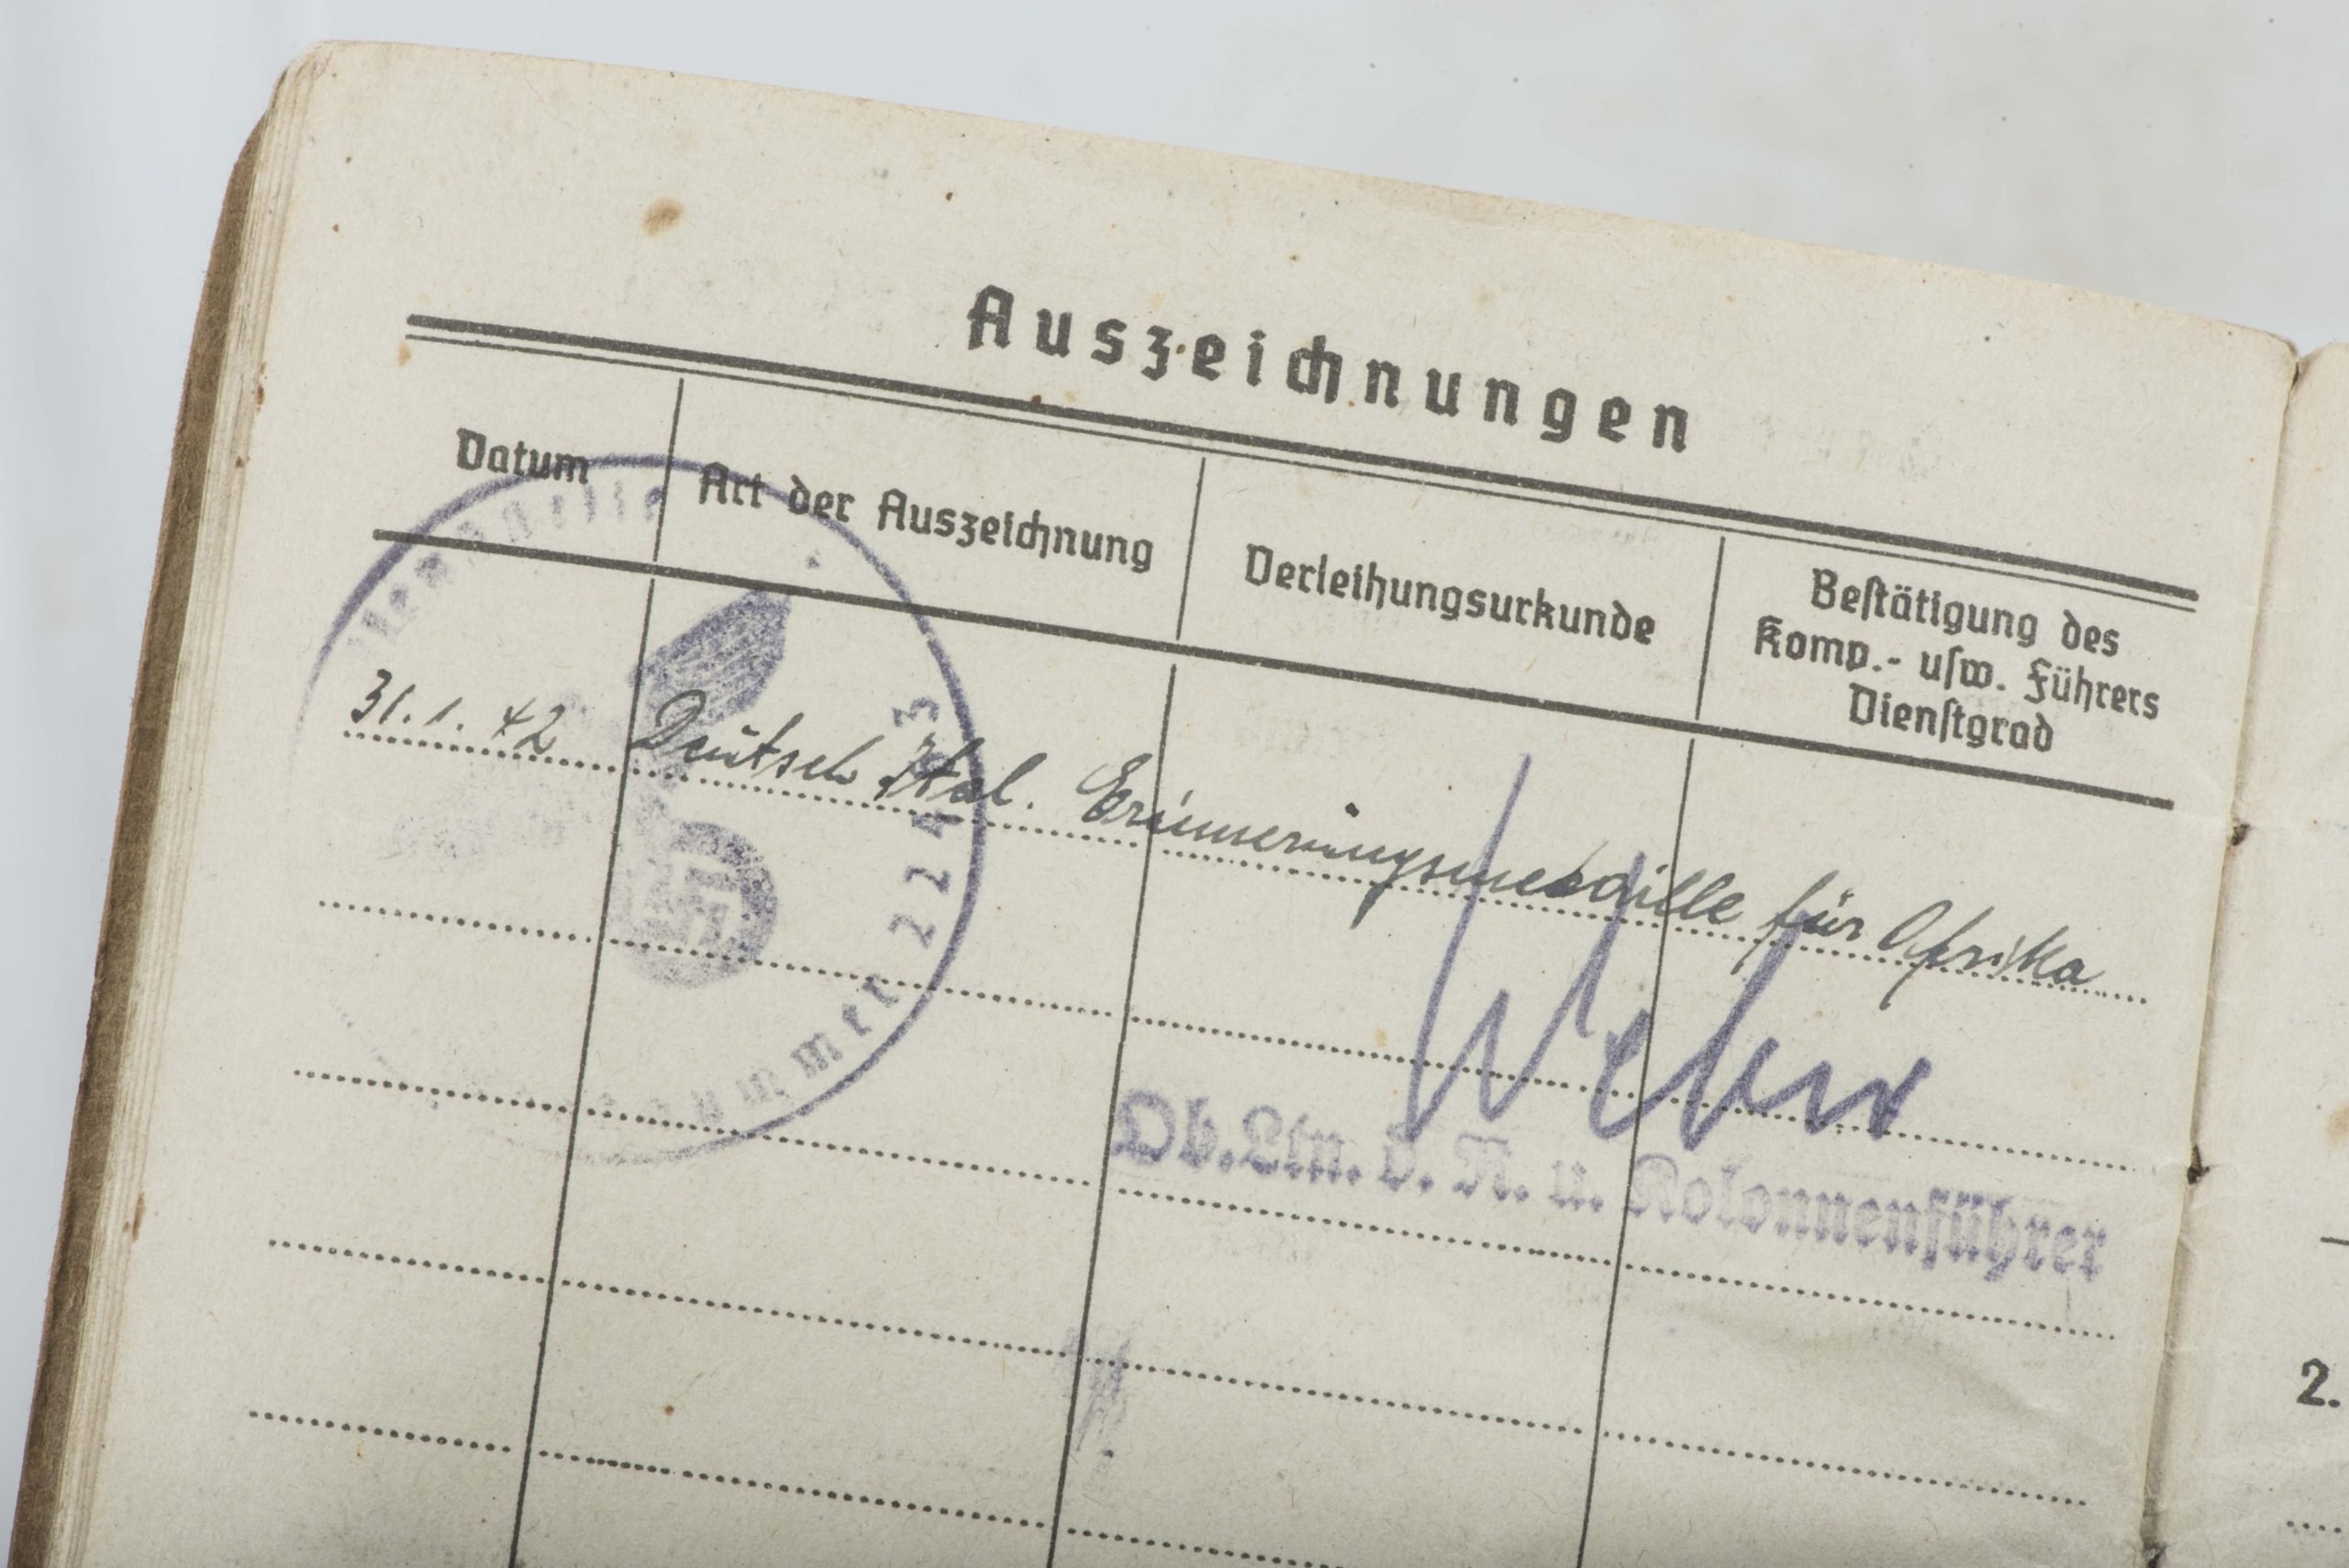 Auszeichnungen
Datum
Art der Auszeichnung
Verleihungsurkunde
Bestätigung des
Komp.- usw. Führers
Dienstgrad
31.1.42 Deutsch Ital. Erinnerungsmedaille für Afrika
Weber
Ob.Ltn. d. R. u. Kolonnenführer
2.